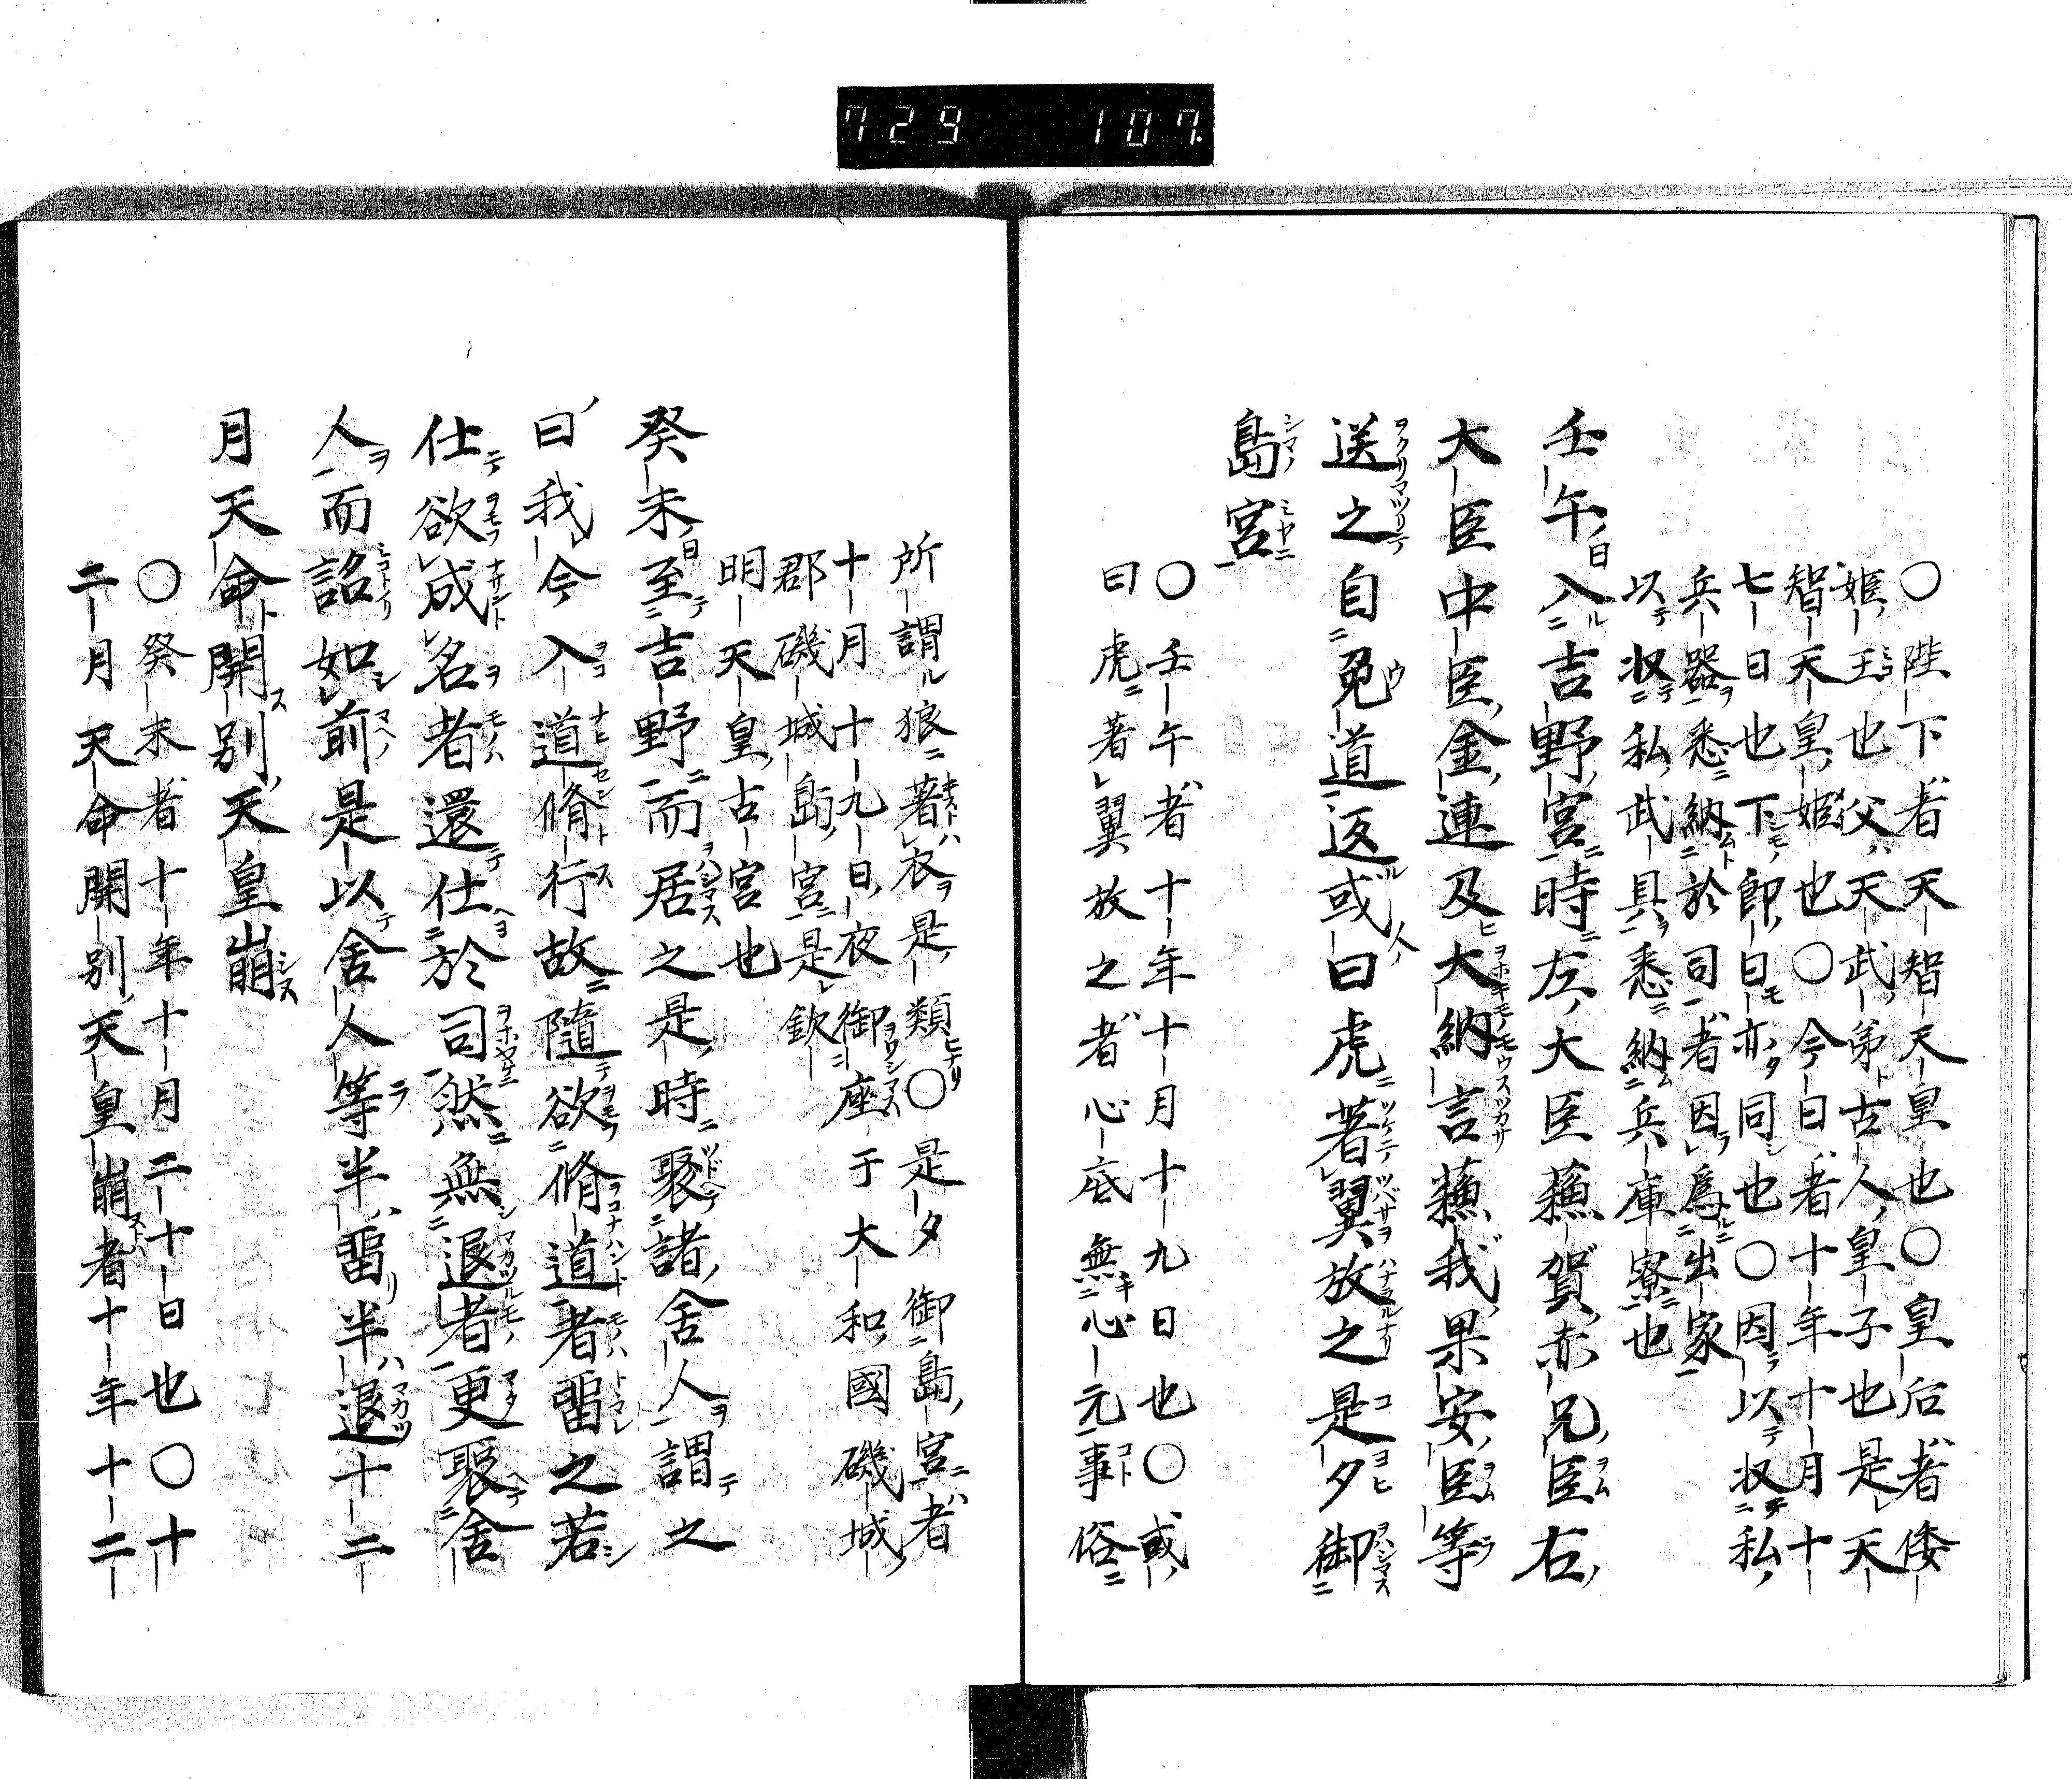 729 107
〇陛下者天智天皇也〇皇后者倭
姫王也父天武弟古人皇子也是天
智天皇姫也〇今日者十年十月十
七日也下即日亦同也〇因以収私
兵器悉納於司者因為出家
以収私武具悉納兵庫寮也
壬午日入吉野宮時左大臣蘓賀赤兄臣右
大臣中臣金連及大納言蘓我果安臣等
送之自菟道返或曰虎著翼放之是夕御
島宮
〇壬午者十年十月十九日也〇或
曰虎著翼放之者心底無心元事俗
所謂狼著衣是類〇是夕御島宮者
十月十九日夜御座于大和國磯城
郡磯城島宮是欽
明天皇古宮也
癸未日至吉野而居之是時聚諸舍人謂之
曰我今入道脩行故隨欲脩道者留之若
仕欲成名者還仕於司然無退者更聚舍
人而詔如前是以舍人等半留半退十二
月天命開別天皇崩
〇癸未者十年十月二十日也〇十
二月天命開別天皇崩者十年十二